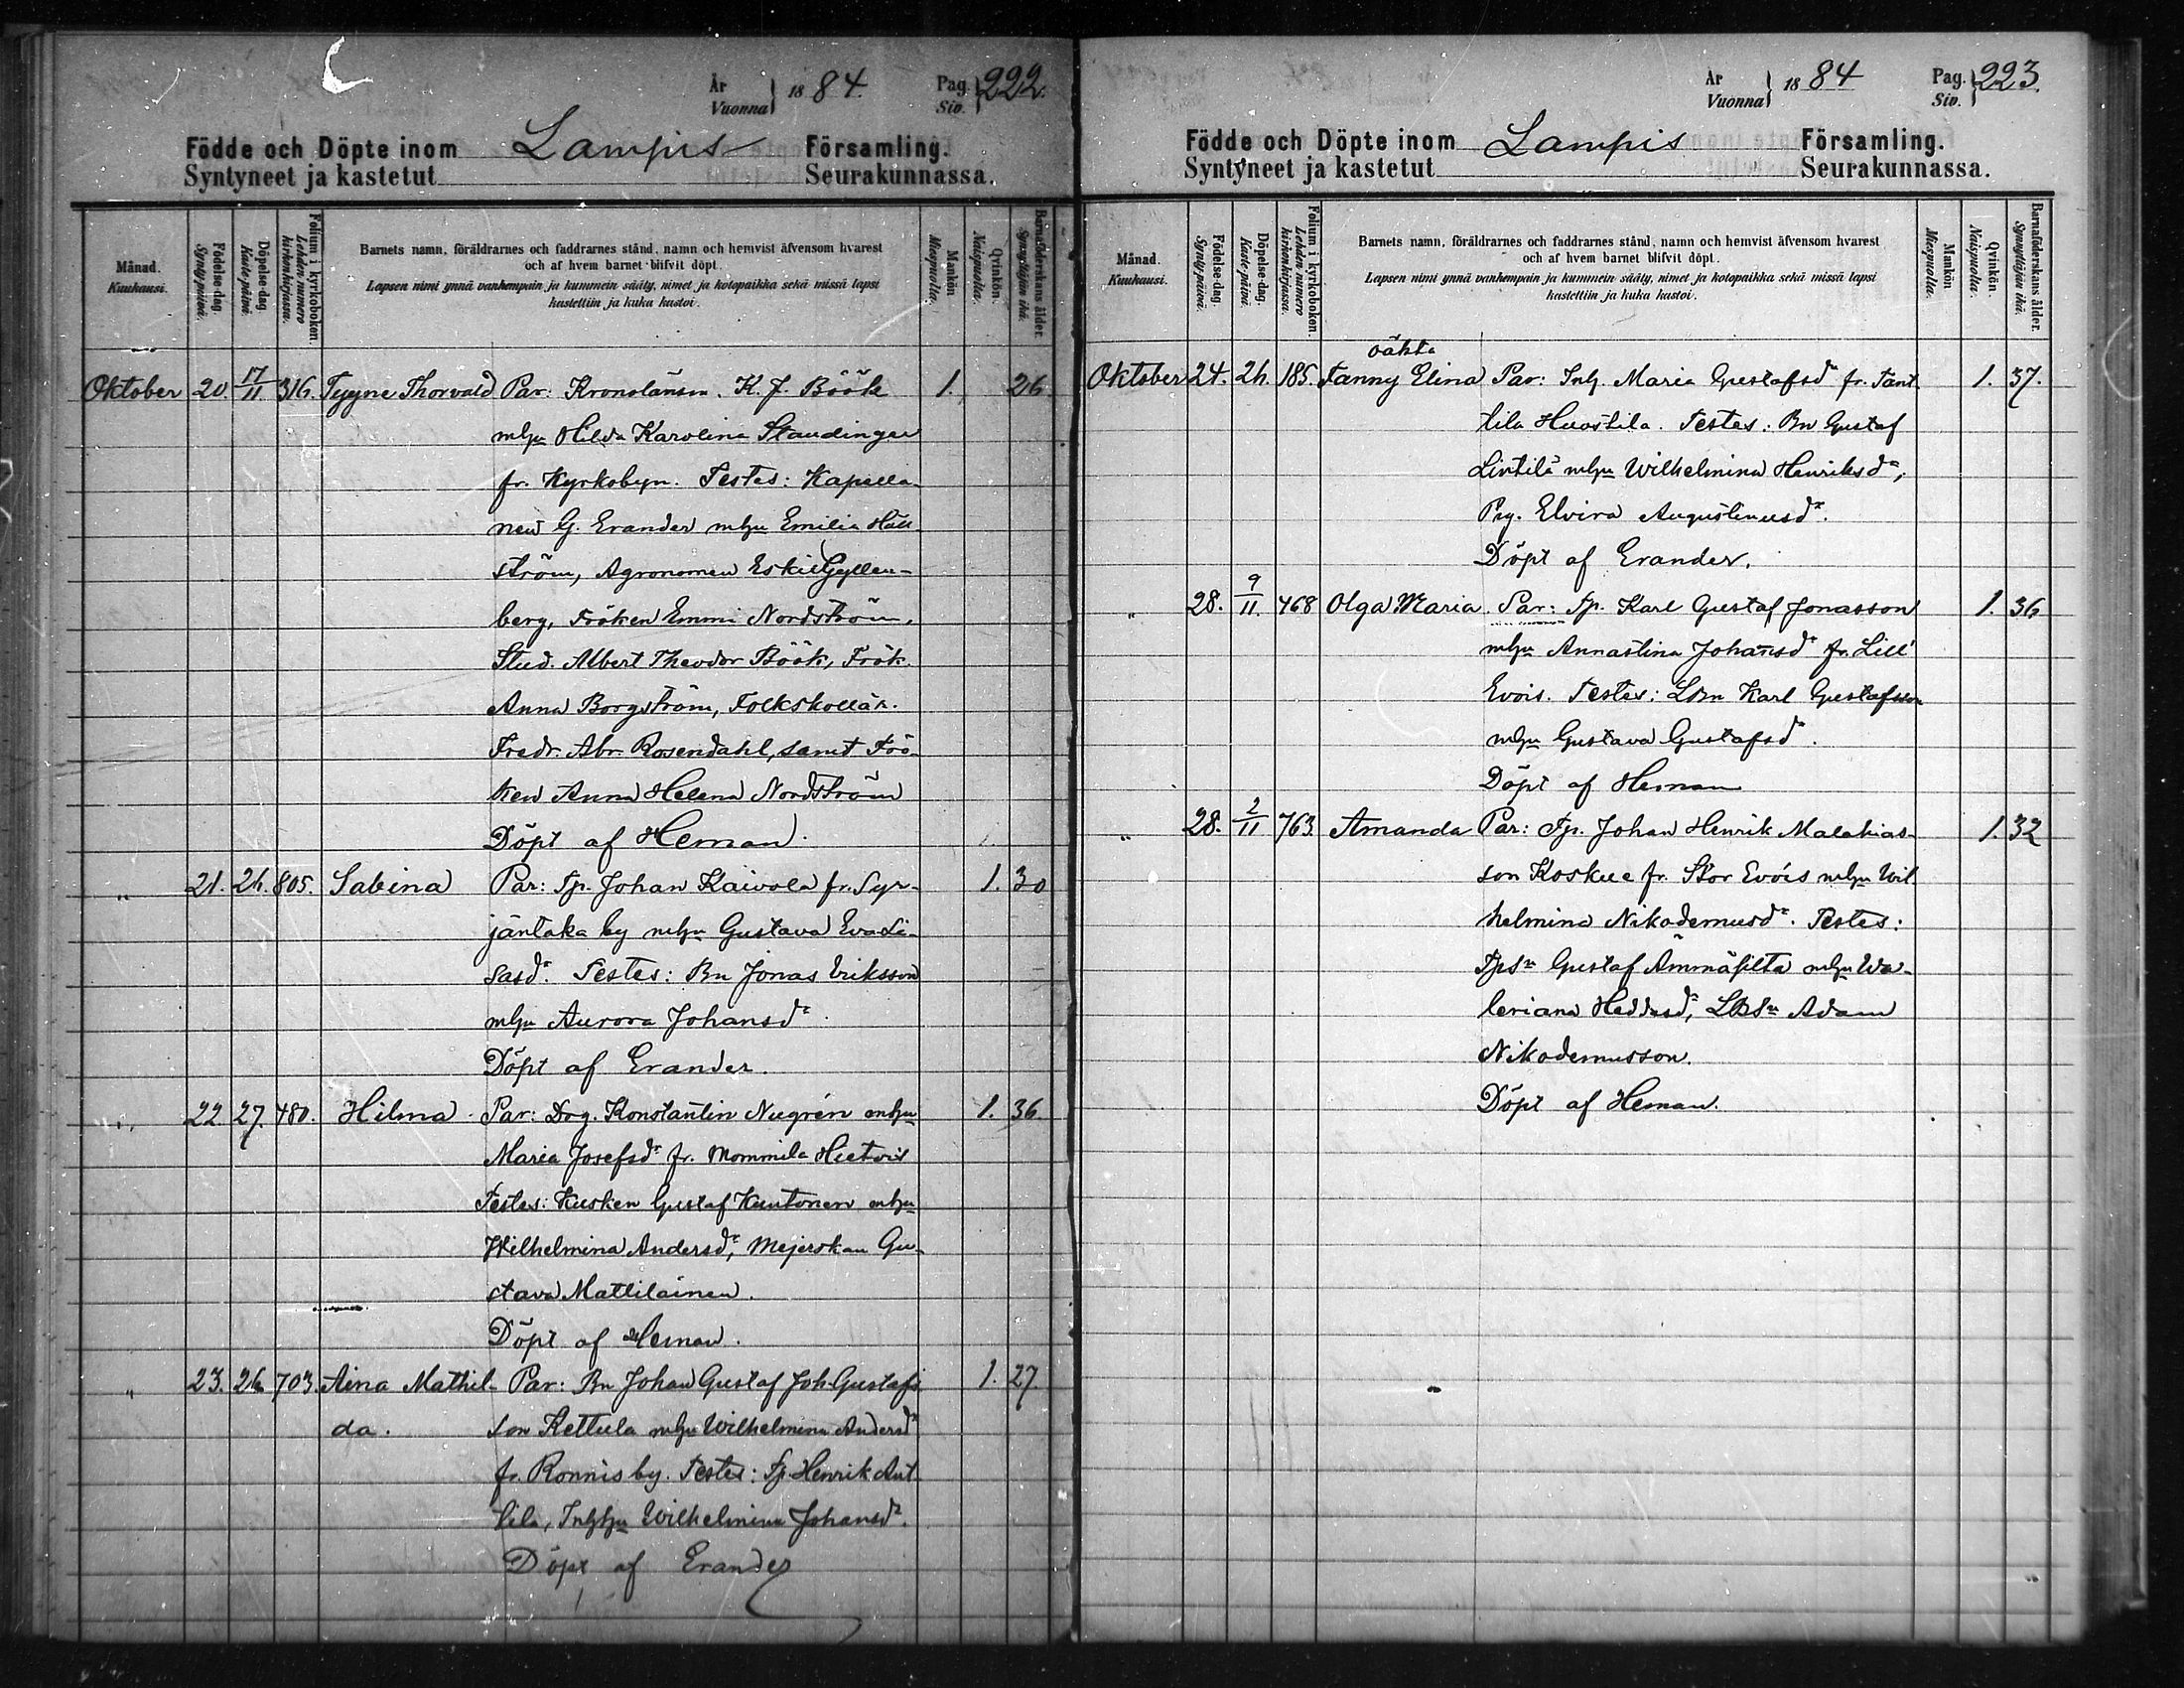 År
Vuonna } 18 84. Pag. Siv. } 222.
Födde och Döpte inom Lampis Församling.
Syntyneet ja kastetut Seurakunnassa.
Månad.
Kuukausi.
Födelse-dag.
Synty-päivä.
Döpelse-dag.
Kaste-päivä.
Folium i kyrkoboken.
Lehden numero kirkonkirjassa.
Barnets namn, föräldrarnes och faddrarnes stånd, namn och hemvist äfvensom hvarest
och af hvem barnet blifvit döpt.
Lapsen nimi ynnä vanhempain ja kummein sääty, nimet ja kotopaikka sekä missä lapsi
kastettiin ja kuka kastoi.
Mankön
Miespuolta.
Qvinkön.
Naispuolta.
Barnaföderskans ålder.
Synnyttäjän ikä.
Oktober 20. 17/11 316. Tyyne Thorvald Par: Kronolänsm. K. J. Böök 1. 26
mhu Hilda Karolina Staudinger
fr. Kyrkobyn. Testes: Kapella-
nen G. Erander mhu Emilia Häll-
ström, Agronomen Eskil Gyllen-
berg, Fröken Emmi Nordström,
Stud. Albert Theodor Böök, Frök.
Anna Borgström, Folkskollär.
Fredr. Abr. Rosendahl, samt Frö-
ken Anna Helena Nordström
Döpt af Heman.
" 21. 26. 805. Sabina Par: Tp. Johan Kaivola fr. Syr- 1. 30
jäntaka by mhu Gustava Eva Li-
sasdr. Testes: Bn Jonas Eriksson
mhu Aurora Johansdr.
Döpt af Erander.
" 22. 27. 480. Hilma Par: Drg. Konstantin Nugrén mhu 1. 36.
Maria Josefsdr fr. Mommila Hietois
Testes: Kusken Gustaf Kuutonen mhu
Wilhelmina Andersdr, Mejerskan Gu-
stava Mattilainen.
Döpt af Heman.
" 23. 26. 703. Aina Mathil- Par: Bn Johan Gustaf Joh. Gustafs 1. 27.
da. son Kettula mhu Wilhelmina Andersdr
fr. Ronnis by. Testes: Tp. Henrik Ant
tila, Inhhu Wilhelmina Johansdr.
Döpt af Erander
År
Vuonna } 18 84 Pag. Siv. } 223.
Födde och Döpte inom Lampis Församling.
Syntyneet ja kastetut Seurakunnassa.
Månad.
Kuukausi.
Födelse-dag.
Synty-päivä.
Döpelse-dag.
Kaste-päivä.
Folium i kyrkoboken.
Lehden numero kirkonkirjassa.
Barnets namn, föräldrarnes och faddrarnes stånd, namn och hemvist äfvensom hvarest
och af hvem barnet blifvit döpt.
Lapsen nimi ynnä vanhempain ja kummein sääty, nimet ja kotopaikka sekä missä lapsi
kastettiin ja kuka kastoi.
Mankön
Miespuolta.
Qvinkön.
Naispuolta.
Barnaföderskans ålder.
Synnyttäjän ikä.
oäkta
Oktober 24. 26. 185. Fanny Elina Par: Inh. Maria Gustafsdr fr. Tant 1. 37.
tila Huostila. Testes: Bn Gustaf
Lintilä mhu Wilhelmina Henriksdr,
Pig. Elvira Augustinusdr.
Döpt af Erander.
" 28. 9/11. 468 Olga Maria Par: Tp. Karl Gustaf Jonasson 1. 36
mhu Annastina Johansdr fr. Lill
Evois. Testes: LBn Karl Gustafsson
mhu Gustava Gustafsdr.
Döpt af Heman
" 28. 2/11 763. Amanda Par: Tp. Johan Henrik Malakias- 1. 32
son Koskue fr. Stor Evois mhu Wil
helmina Nikodemusdr. Testes:
Tpsn Gustaf Ämmäsilta mhu Wa-
leriana Heddasdr, LBSn Adam
Nikodemusson.
Döpt af Heman.